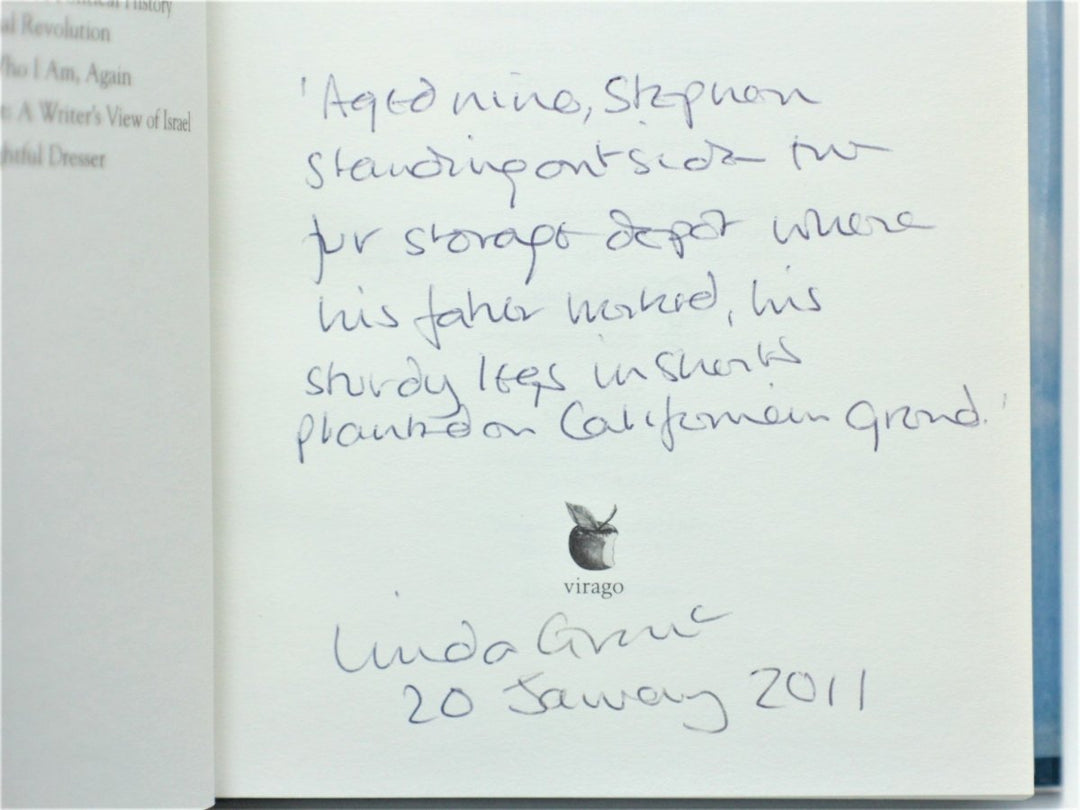 al History
al Revolution
Who I Am, Again
: A Writer's View of Israel
ghtful Dresser
'Aged nine, Stephen
standing outside the
fur storage depot where
his father worked, his
sturdy legs in shorts
planted on Californian ground.'
virago
Linda Grant
20 January 2011